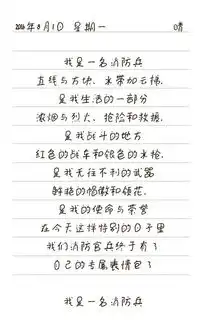 2016年8月1日 星期一 晴
我是一名消防兵
直线与方块、水带加云梯.
是我生活的一部分
浓烟与烈火、抢险和救援.
是我战斗的地方
红色的战车和银色的水枪.
是我无往不利的武器
鲜艳的徽徽和领花.
是我的使命与荣誉
在今天这样特别的日子里
我们消防官兵终于有了
自己的专属表情包了
我是一名消防兵